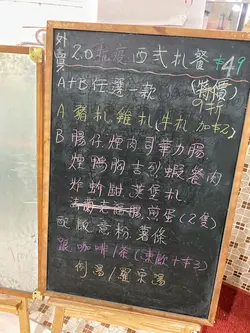 外賣 2.0 抗疫 西式扒餐 $49
A+B 任選一款 (特價 9折
A 豬扒 雞扒 (牛扒 加$2)
B 腸仔 煙肉 司華力腸
煙鴨胸 吉列蝦 餐肉
炸蚧鉗 漢堡扒
煎蛋 (2隻)
意粉 薯條
跟咖啡/茶 (凍飲+$3)
例湯/羅宋湯